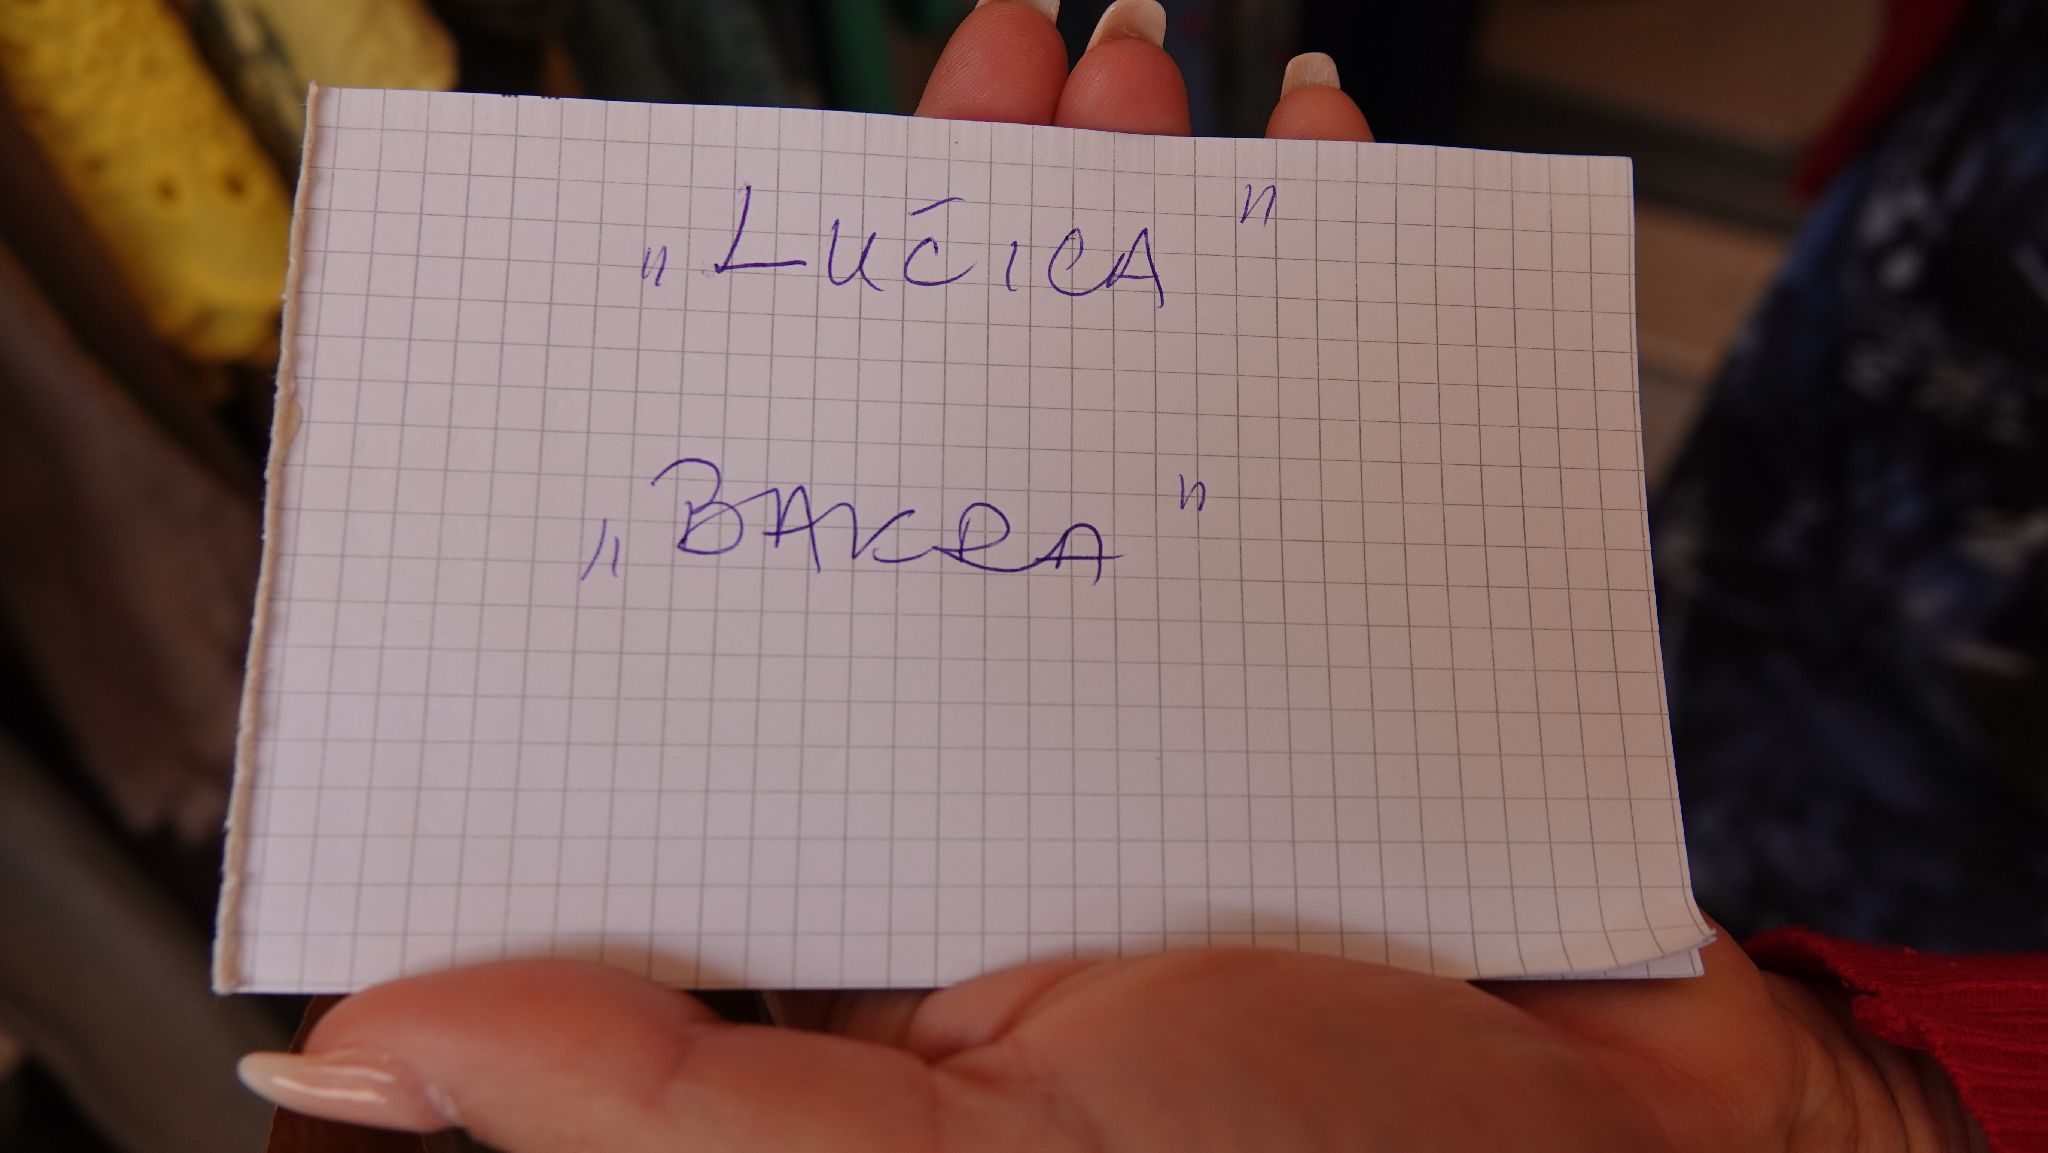 „LUČICA"
„BAKRA"